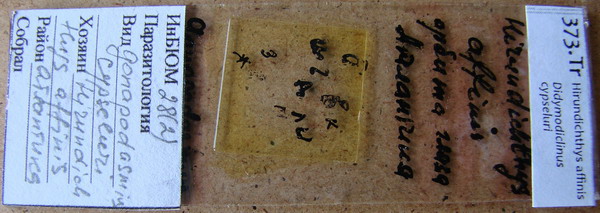 ИнБЮМ 28(2)
Паразитология
Вид Gonapodasmius
cypseluri
Хозяин Hirundich
thys affinis
Район Атлантика
Собрал
Hirundichthys
affinis
орбита глаза
Атлантика
373.Tr
Hirundichthys affinis
Didymodiclinus
cypseluri